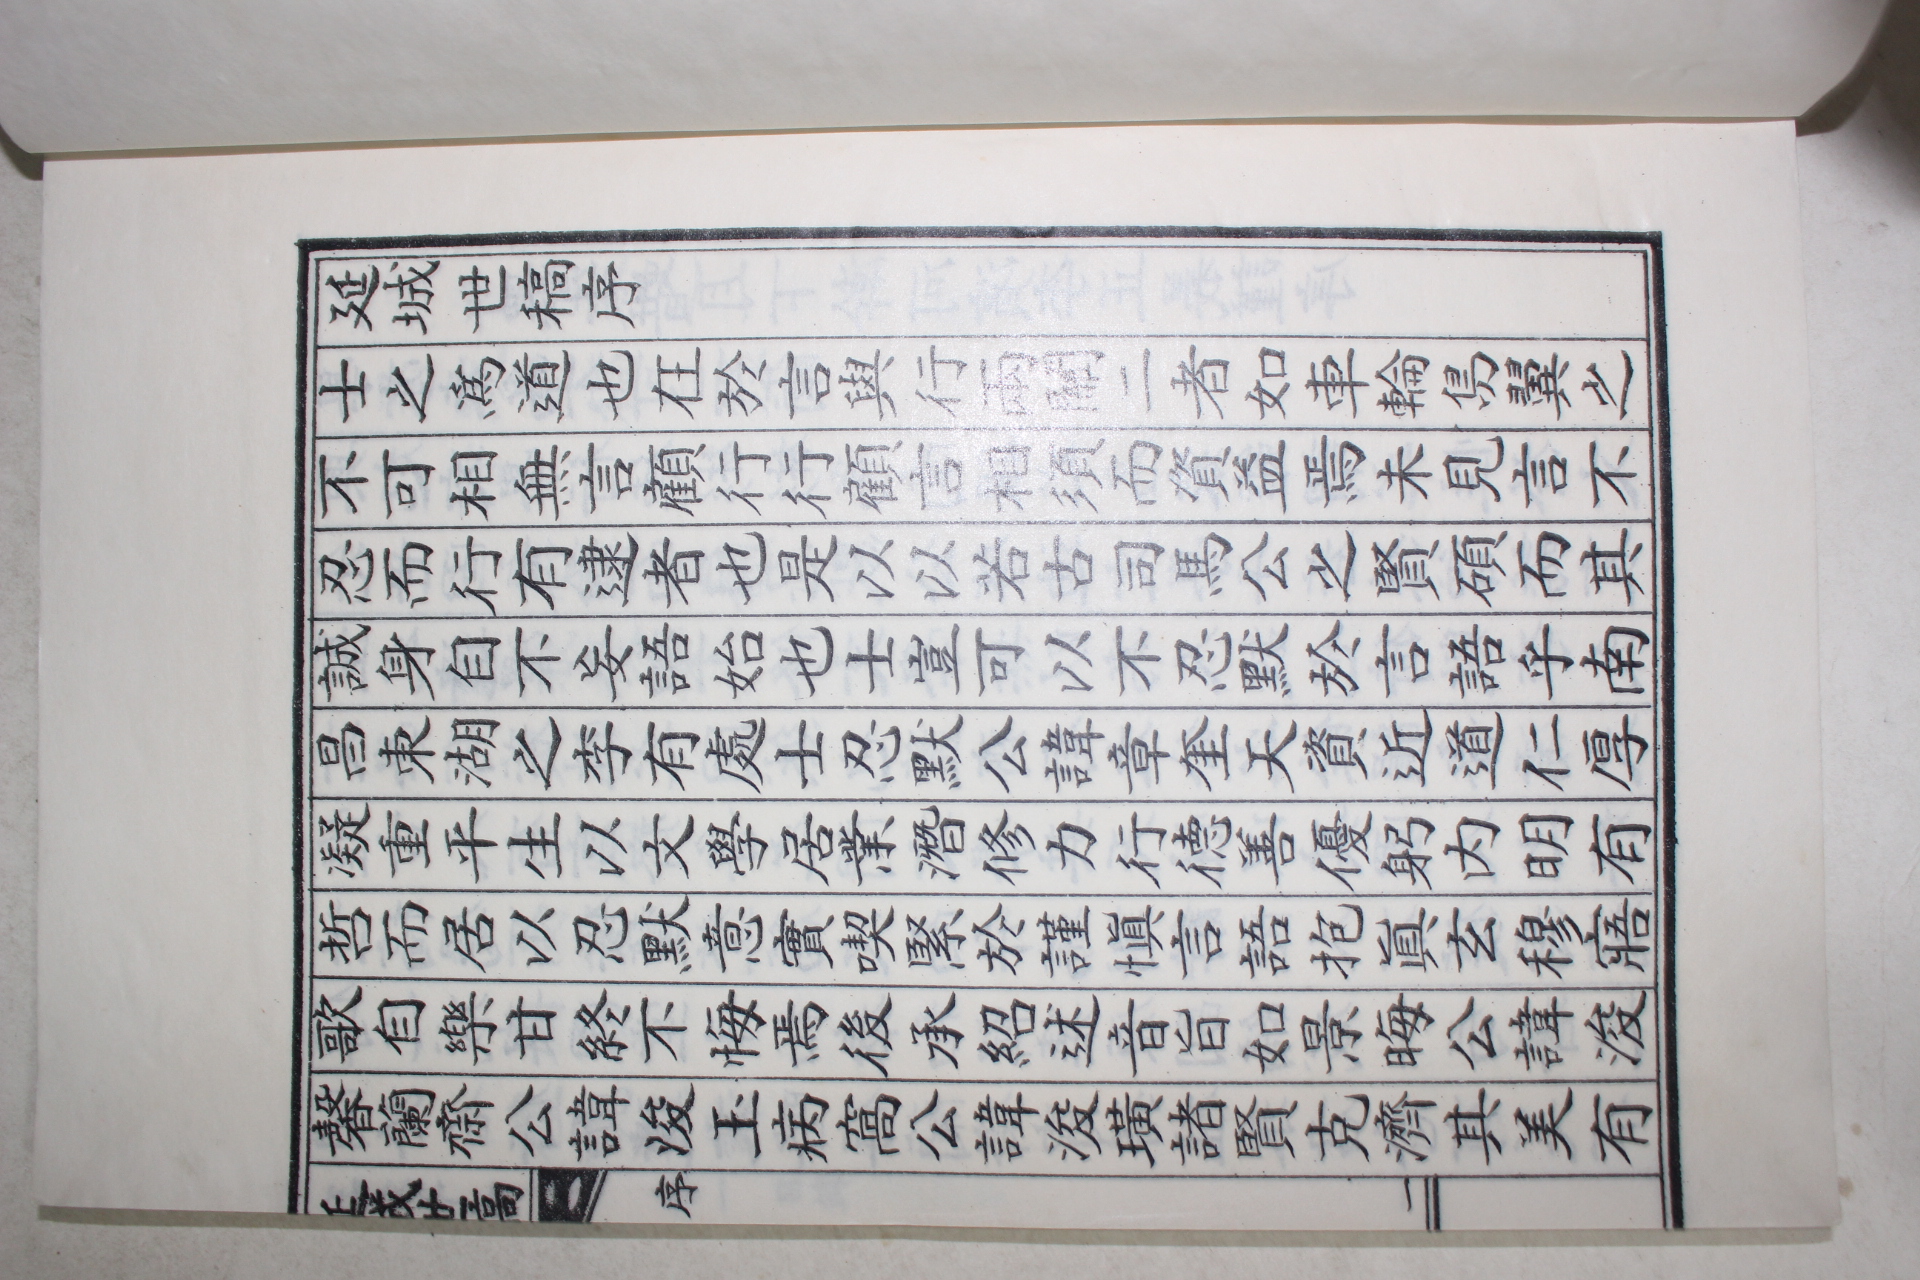 延城世稿序
士之爲道也在於言與行而關二者如車輪鳥翼之
不可相無言顧行行顧言相須而資益焉未見言不
忍而行有逮者也是以以若古司馬公之賢碩而其
誠身自不妄語始也士豈可以不忍默於言語乎南
昌東湖之李有處士忍默公諱章奎天資近道仁厚
凝重平生以文學居業潛修力行德善優躬内明有
哲而居以忍默意實喫緊於謹愼言語抱眞玄穆寤
歌自樂甘終不悔焉後承紹述音旨如景晦公諱浚
馨蘭齋公諱浚玉病窩公諱浚璜諸賢克濟其美有
序
一